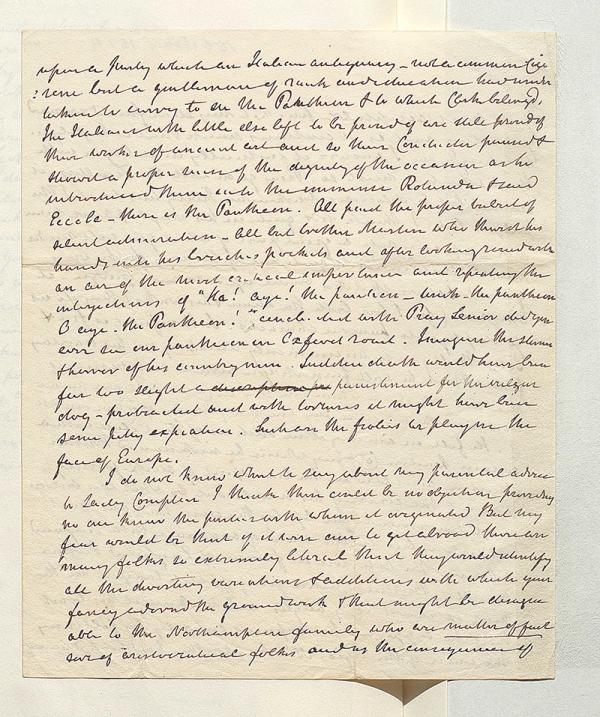 upon a party which an Italian antiquary - not a common Cice
: rone but a gentleman of rank and education had under
taken to convey to see the Pantheon & to which Clerk belonged.
The Italians with little else left to be proud of are still proud of
their works of ancient art and so their Conductor paused &
showd a proper sense of the dignity of the occasion as he
introduced them into the immense Rotunda & said
Eccola - there is the Pantheon. All paid the proper tribute of
silent admiration - All but brother who thrust his
hands into his breeches pockets and after looking round with
an air of the most critical importance and repeating the
interjections of "Ha! aye! the pantheon - umh - the pantheon
O aye - the Pantheon!" concluded with Pray Senior did you
ever see our pantheon in Oxford road. Imagine the shame
& horror of his countrymen. Sudden death would have been
far too slight a description for punishment for the vulgar
dog - protracted and with tortures it might have been
some filthy expiation. Such are the frolics we play in the
face of Europe.
I do not know what to say about my parental advice
to Lady Compton I think there could be no objection providing
no one knew the parties with whom it originated But my
fear would be that if it were ever to get abroad there are
many folks so extremely literal that they would identify
all the diverting variations & additions with which your
fancy adornd the ground work & that might be disagree
able to the Northampton family who are matter of fact
sort of aristocratical folks and as the consequence of